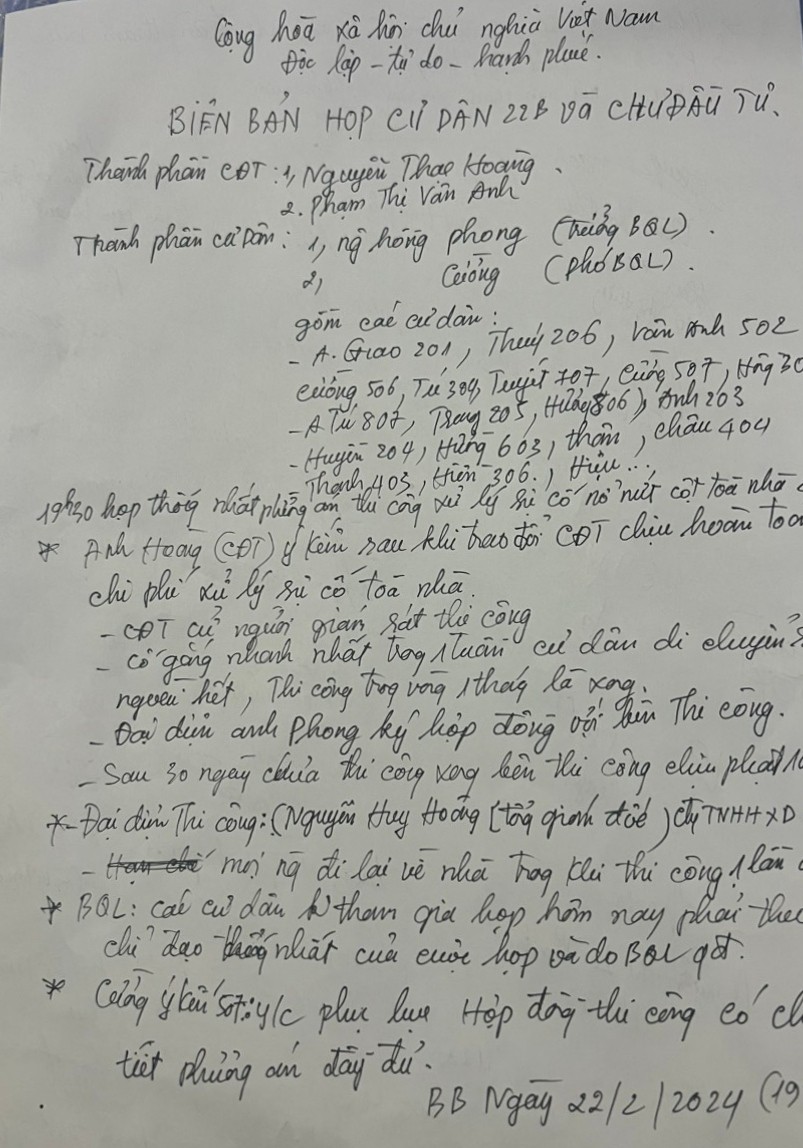 Cộng hoà xã hội chủ nghĩa Việt Nam
Độc lập - tự do - hạnh phúc.
BIÊN BẢN HỌP CƯ DÂN 22B và CHỦ ĐẦU TƯ.
Thành phần CĐT: 1, Nguyễn Thac Hoàng.
2. Phạm Thị Vân Anh
Thành phần cư Dân: 1, ng hồng phong (trưởng BQL).
2, Cường (phó BQL).
gồm các cư dân:
- A. Giao 201, Thuý 206, Vân Anh 502
Cường 506, Tú 304, Tuyết 707, Cường 507, Hồng 30
- A Tú 807, Trang 205, Hường 806, Anh 203
- Huyền 204, Hưng 603, thơm, châu 404
Thanh 403, Hiền 306., Hiệu...
19h30 họp thống nhất phương án thi công xử lý sự cố nổ nứt cột toà nhà
* Anh Hoàng (CĐT) ý kiến sau khi trao đổi CĐT chịu hoàn toà
chi phí xử lý sự cố toà nhà.
- CĐT cử người giám sát thi công
- cố gắng nhanh nhất trog 1 tuần cư dân di chuyển
người hết, Thi công trog vòng 1 thág là xog.
- Đại diện anh Phong ký hợp đồng với bên Thi công.
- Sau 30 ngày chưa thi công xog bên thi công chịu phạt 10
* - Đại diện Thi công: (Nguyễn Huy Hoàng [tổg giám đốc) cty TNHH XD
- mọi ng đi lại về nhà trog khi thi công 1 lần
* BQL: các cư dân k tham gia họp hôm nay phải the
chỉ đạo thốg nhất của cuộc họp và do BQL qđ.
* Cường ý kiến 507: y/c phục lục Hợp đồg thi công có ch
tiết phương án đầy đủ.
BB Ngày 22/2/2024 (19